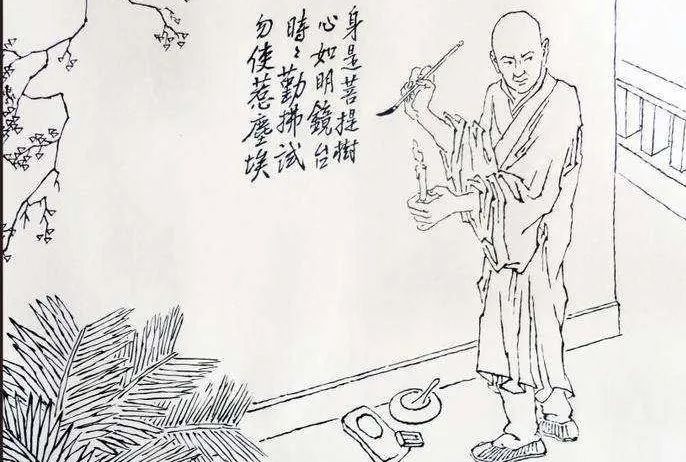 身是菩提樹
心如明鏡台
時〻勤拂試
勿使惹塵埃